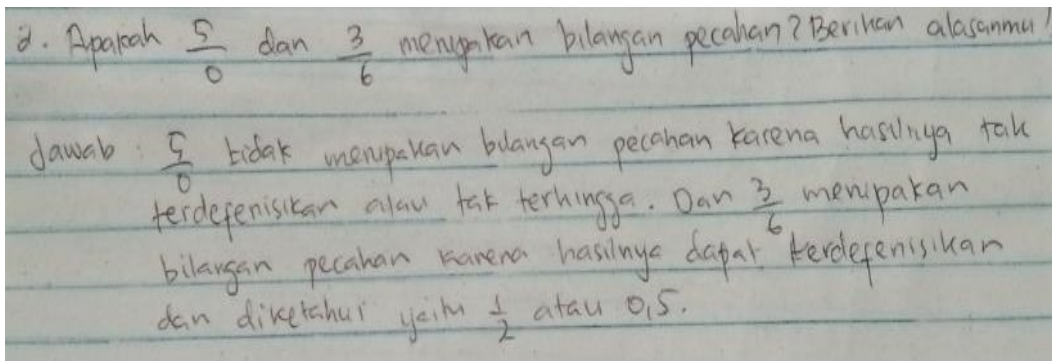 2. Apakah 5/0 dan 3/6 merupakan bilangan pecahan? Berikan alasanmu!
Jawab : 5/0 tidak merupakan bilangan pecahan karena hasilnya tak
terdefenisikan atau tak terhingga. Dan 3/6 merupakan
bilangan pecahan karena hasilnya dapat terdefenisikan
dan diketahui yaitu 1/2 atau 0,5.